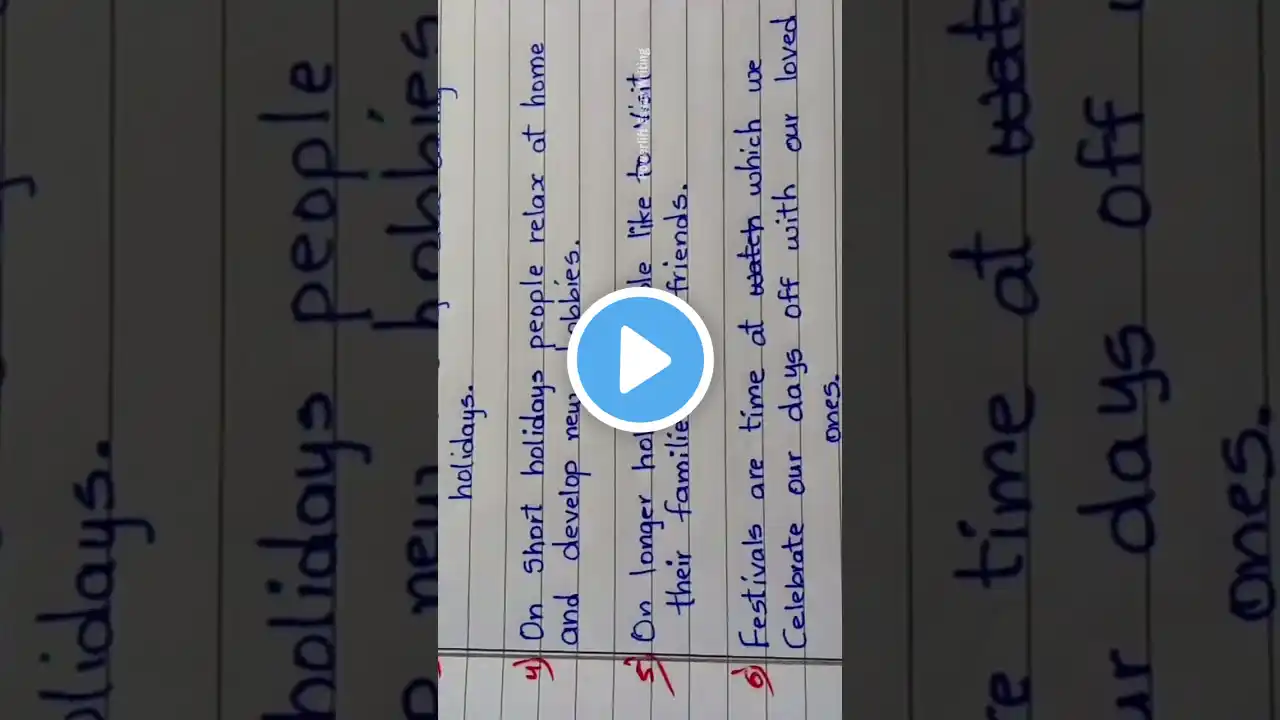 holidays.
4) On Short holidays people relax at home
and develop new hobbies.
5) On longer like to visit
their families friends.
6) Festivals are time at watch which we
Celebrate our days off with our loved
ones.